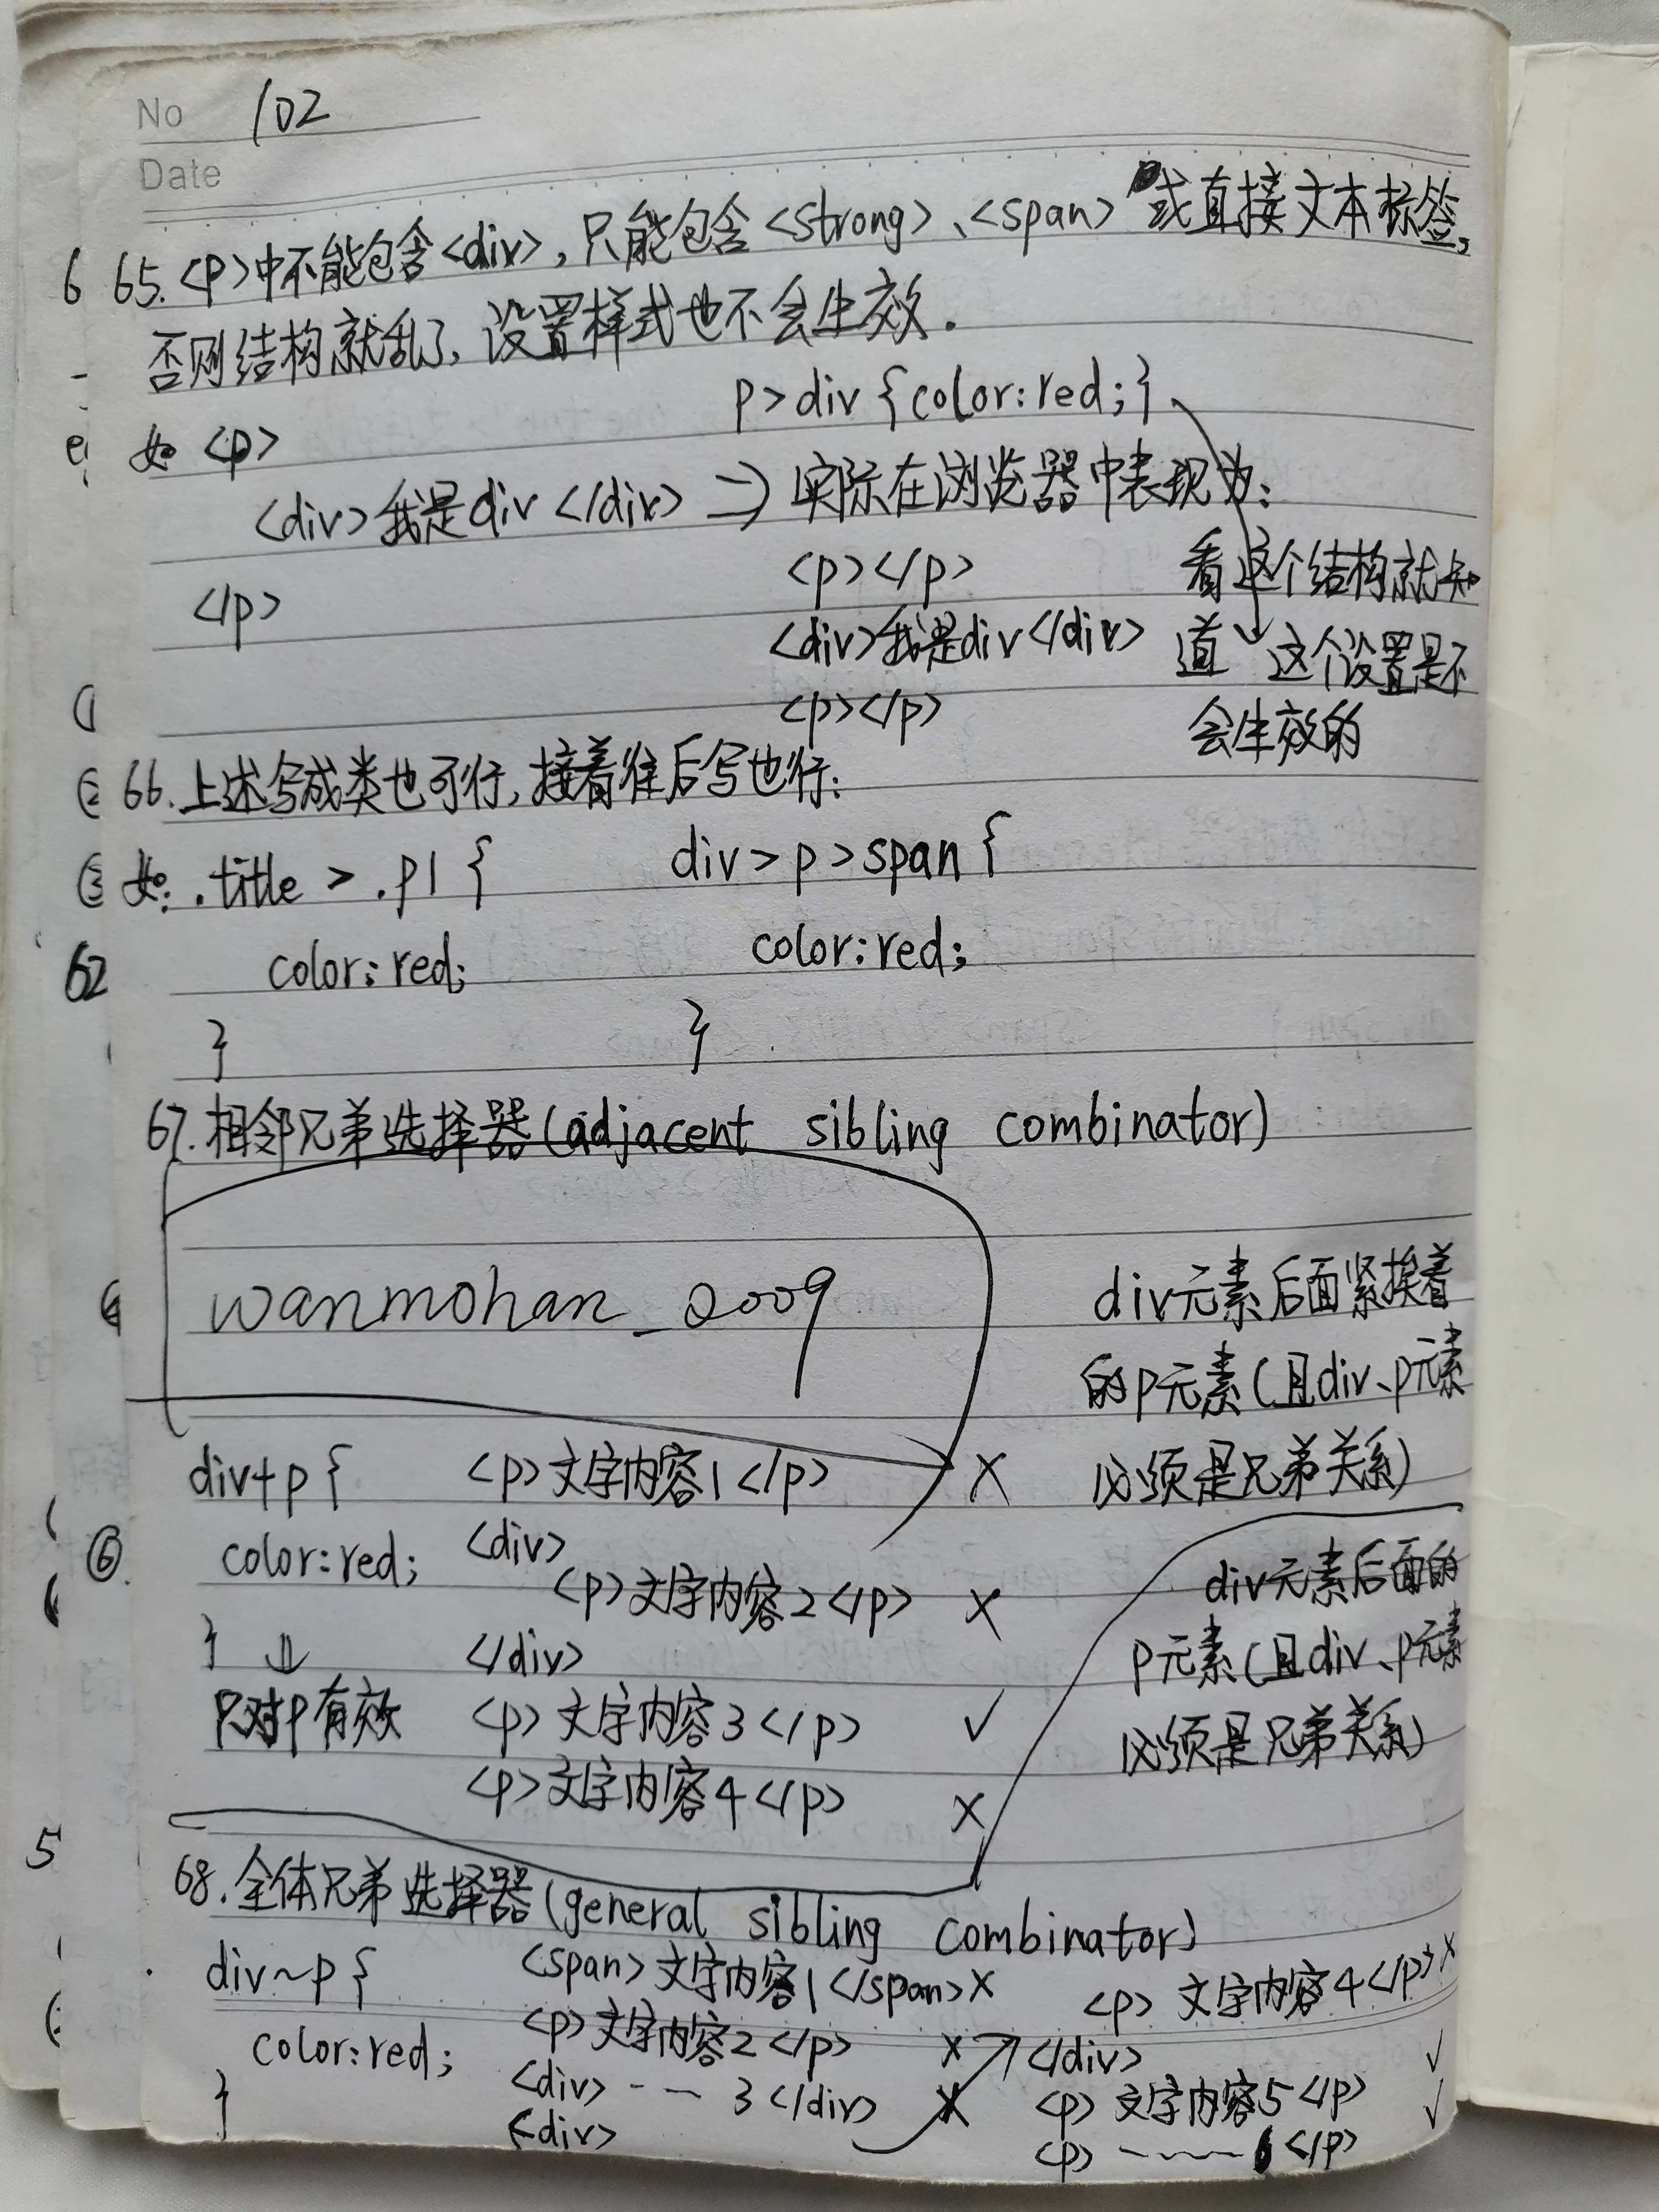 No 102
Date
65. <p>中不能包含<div>,只能包含<strong>、<span>或直接文本标签,
否则结构就乱了,设置样式也不会生效.
p>div{color:red;}
如 <p>
<div>我是div</div> => 实际在浏览器中表现为:
</p>
<p></p>
<div>我是div</div>
<p></p>
看这个结构就知
道 这个设置是不
会生效的
66.上述写成类也可行,接着往后写也行:
如: .title > .p1 {
color:red;
}
div>p>span{
color:red;
}
67.相邻兄弟选择器(adjacent sibling combinator)
wanmohan_2009
div元素后面紧挨着
的p元素(且div、p元素
必须是兄弟关系)
div+p {
color:red;
} ⇓
只对p有效
<p>文字内容1</p> ×
<div>
<p>文字内容2</p> ×
</div>
<p>文字内容3</p> ✓
<p>文字内容4</p> ×
div元素后面的
p元素(且div、p元素
必须是兄弟关系)
68.全体兄弟选择器(general sibling combinator)
div~p {
color:red;
}
<span>文字内容1</span> ×
<p>文字内容2</p> ×
<div> -- 3</div> ×
<div>
<p>文字内容4</p> ×
</div>
<p>文字内容5</p> ✓
<p> ~~~~ 6</p> ✓
6
62
⑥
5